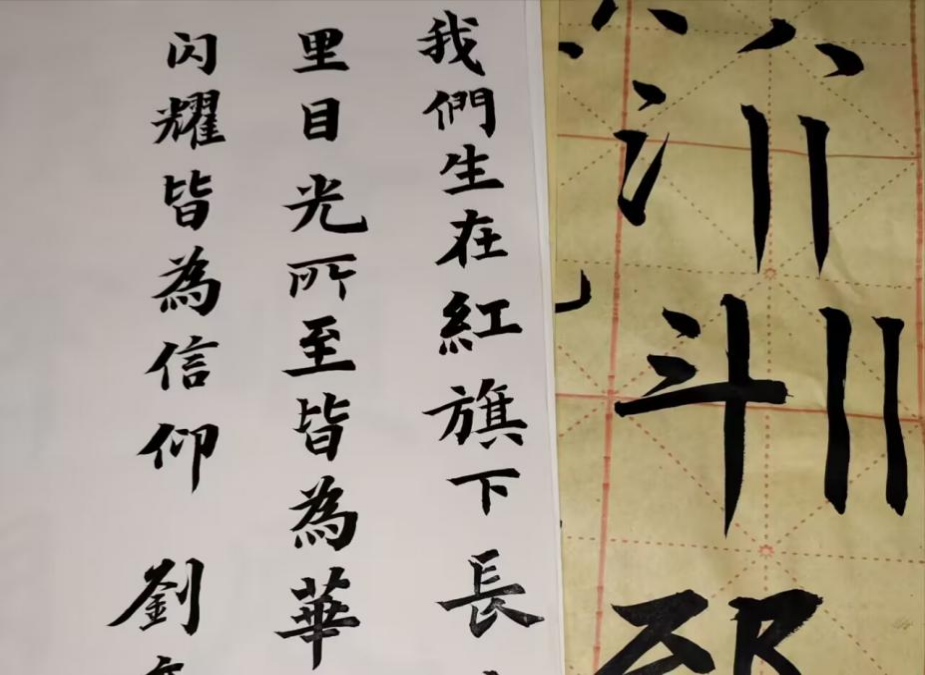 我們生在紅旗下長
里目光所至皆為華
閃耀皆為信仰 劉
斗